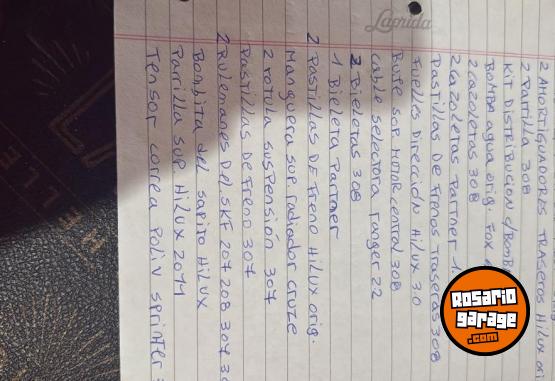 Laprida
2 AMORTIGUADORES TRASEROS Hilux ori
2 Parrilla 308
Kit DISTRIBUCION c/Bomb
BOMBA agua orig. Fox
2 cazoletas 308
2 cazoletas Partner 1
Pastillas De Frenos Traseras 308
Fuelles Dirección Hilux 3.0
Bute sop motor central 308
cable selectora ranger 22
2 Bieletas 308
1 Bieleta Partner
2 Pastillas De Freno Hilux orig.
Manguera sup. radiador cruze
2 rotula suspension 307
Pastillas De Freno 307
2 Rulemanes Del SKF 207 208 307 30
Bombita del sapito Hilux
Parrilla sup. Hilux 2011
Tensor correa Poli V sprinter
Rosario
garage
.com